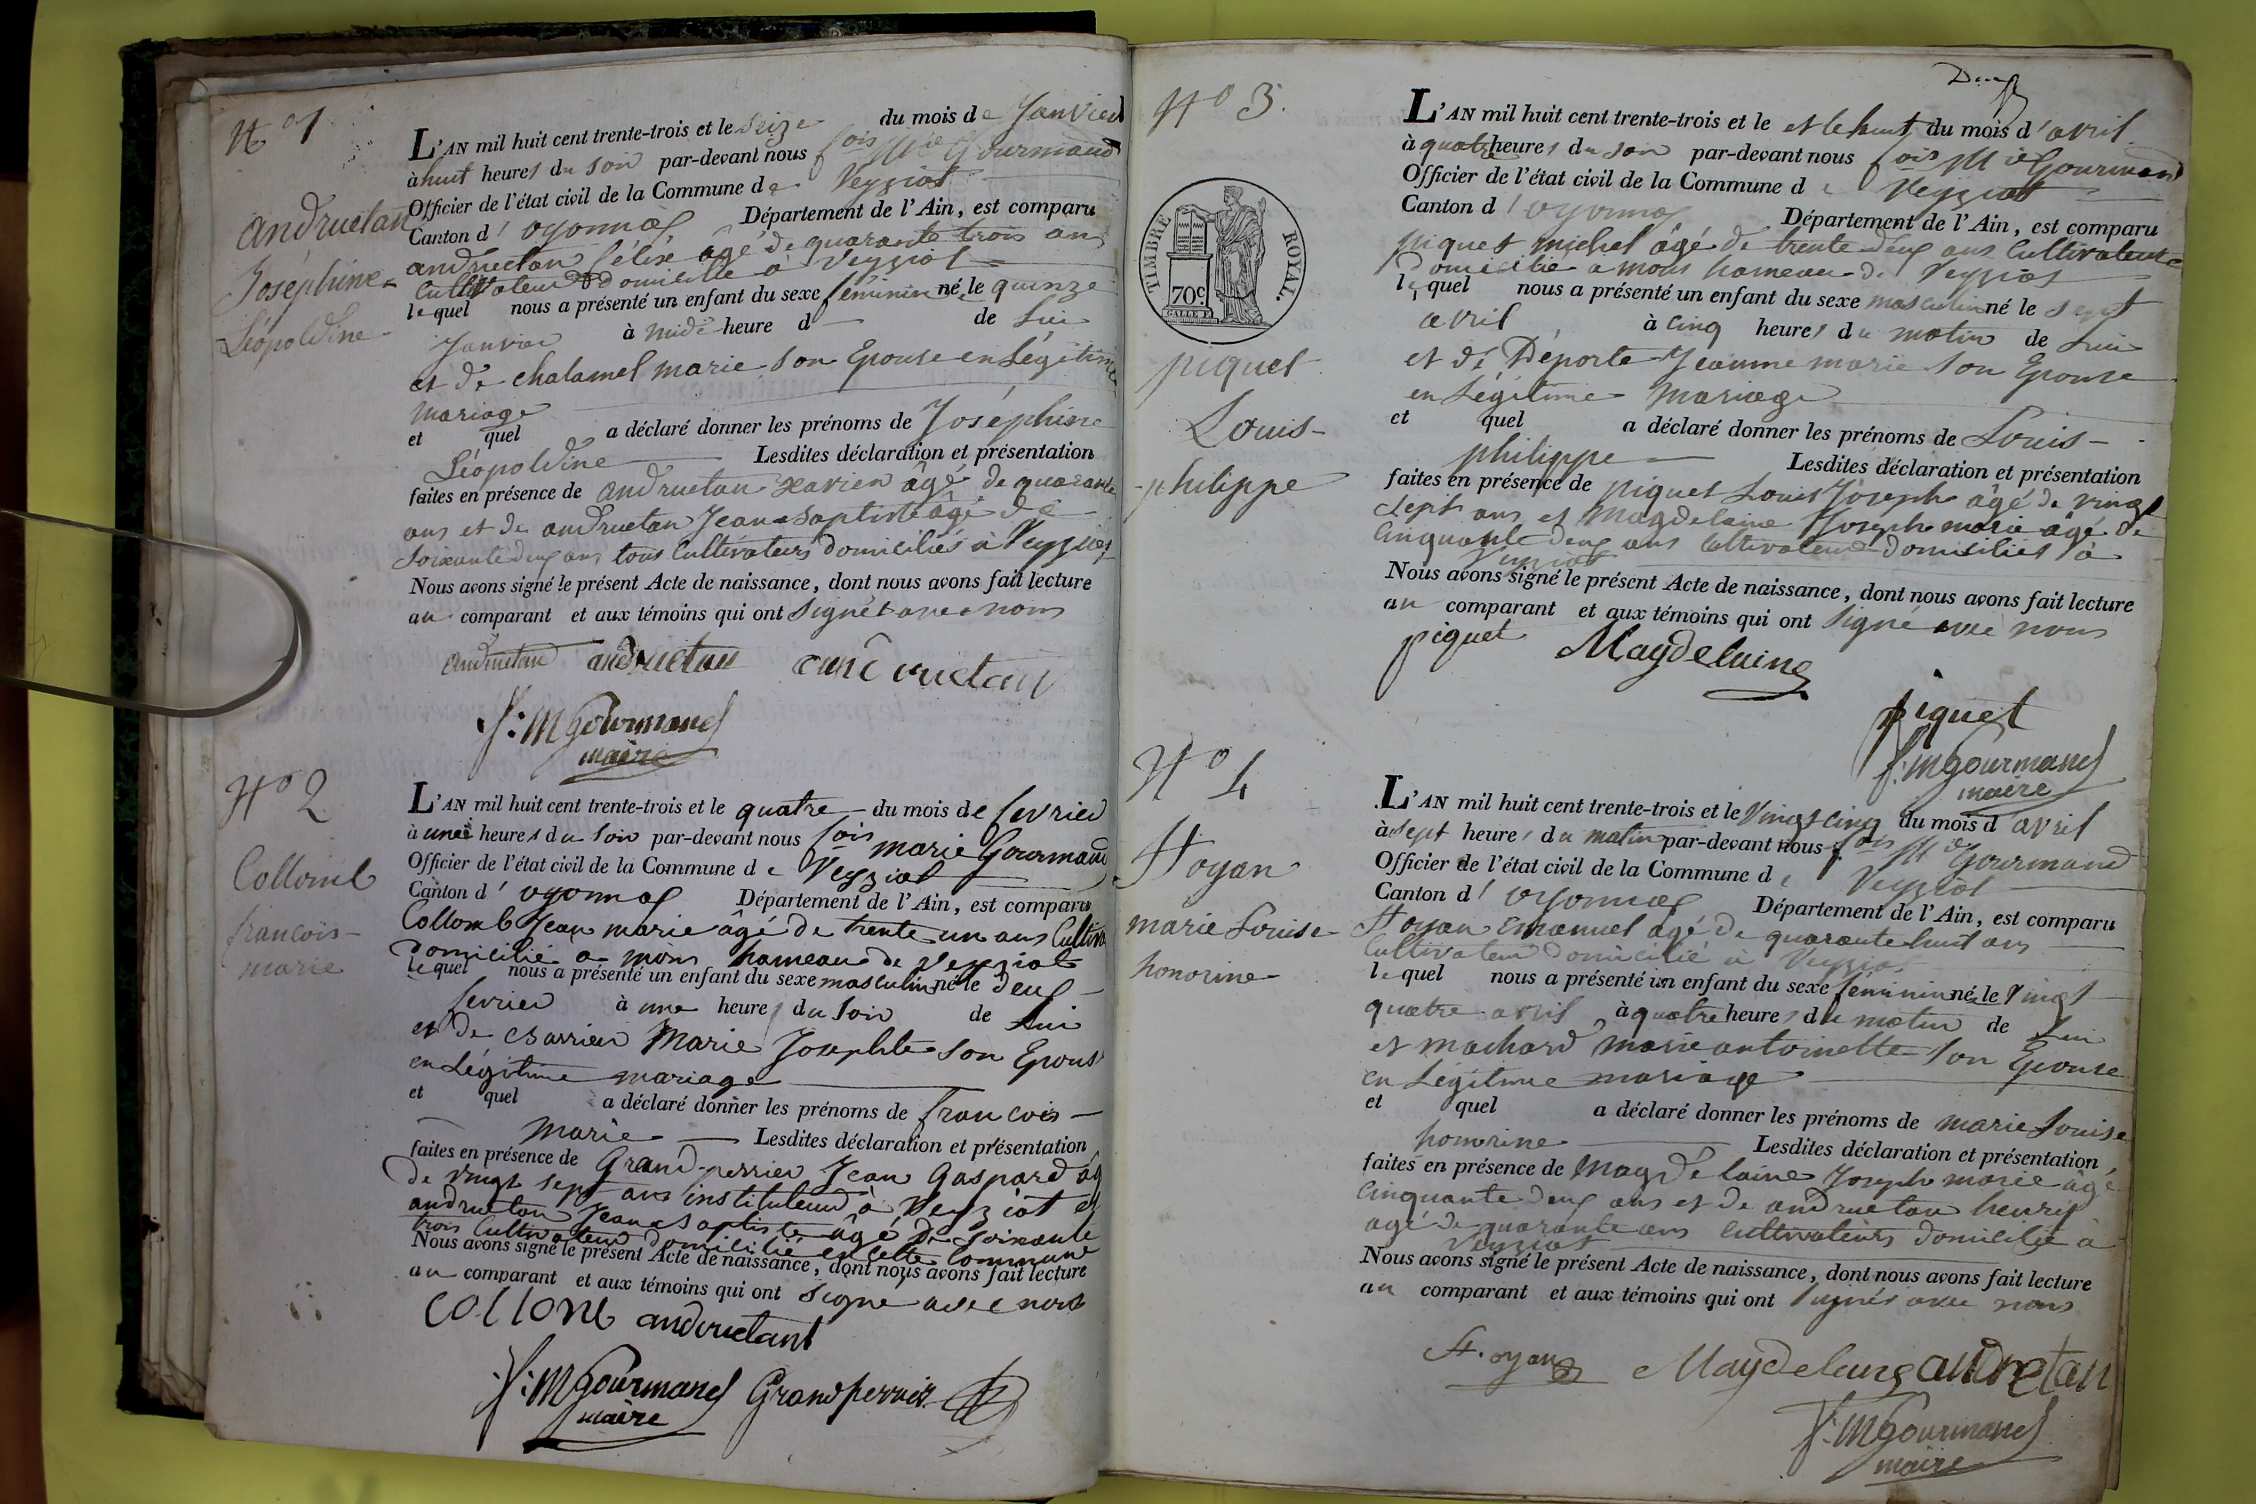 N° 1
andruetan
Joséphine-
Léopoldine
L'AN mil huit cent trente-trois et le seize du mois de Janvier
à huit heures du soir par-devant nous fois Mie Gourmand
Officier de l'état civil de la Commune de Veyziat
Canton d'oyonnax Département de l'Ain, est comparu
andruetan félix âgé de quarante trois ans
Cultivateur domicilié à Veyziat
lequel nous a présenté un enfant du sexe féminin né le quinze
Janvier à midi heure d de Lui
et de chalamel marie son Epouse en Légitime
mariage
et quel a déclaré donner les prénoms de Joséphine
Léopoldine Lesdites déclaration et présentation
faites en présence de andruetan xavier âgé de quarante
ans et de andruetan Jean-Baptiste âgé de
soixante deux ans, tous Cultivateurs domiciliés à Veyziat
Nous avons signé le présent Acte de naissance, dont nous avons fait lecture
au comparant et aux témoins qui ont signé avec nous
andruetan andruetan andruetan
f: M Gourmand
maire
N° 2
Collomb
francois-
marie
L'AN mil huit cent trente-trois et le quatre du mois de fevrier
à une heures du soir par-devant nous fois marie Gourmand
Officier de l'état civil de la Commune de Veyziat
Canton d'oyonnax Département de l'Ain, est comparu
Collomb Jean marie âgé de trente un ans Cultiv
domicilié a mons hameau de Veyziat
lequel nous a présenté un enfant du sexe masculin né le deux
fevrier à une heures du soir de Lui
et de Barrier Marie Josephte son Epouse
en Légitime mariage
et quel a déclaré donner les prénoms de francois-
marie Lesdites déclaration et présentation
faites en présence de Grand-perrier Jean Gaspard âgé
de vingt sept ans instituteur à Veyziat et
andruetan Jean-Baptiste âgé de soixante
trois Cultivateur domicilié en cette Commune
Nous avons signé le présent Acte de naissance, dont nous avons fait lecture
au comparant et aux témoins qui ont signé avec nous
collomb andruetant
f: M Gourmand Grandperrier
maire
Deux
N° 3.
TIMBRE ROYAL.
70c.
piquet
Louis-
philippe
L'AN mil huit cent trente-trois et le et le huit du mois d'avril
à quatre heures du soir par-devant nous fois Mie Gourmand
Officier de l'état civil de la Commune de Veyziat
Canton d'oyonnax Département de l'Ain, est comparu
piquet michel âgé de trente deux ans Cultivateur
domicilié a mons hameau de Veyziat
lequel nous a présenté un enfant du sexe masculin né le sept
avril à cinq heures du matin de Lui
et de Déporte Jeanne marie son Epouse
en Légitime mariage
et quel a déclaré donner les prénoms de Louis-
philippe Lesdites déclaration et présentation
faites en présence de piquet Louis Joseph âgé de vingt
sept ans et magdelaine Joseph marie âgé de
cinquante deux ans Cultivateurs domiciliés à
Veyziat
Nous avons signé le présent Acte de naissance, dont nous avons fait lecture
au comparant et aux témoins qui ont signé avec nous
piquet Magdelaine
piquet
f: M Gourmand
maire
N° 4
hoyan
marie Louise
honorine
L'AN mil huit cent trente-trois et le vingt cinq du mois d'avril
à sept heures du matin par-devant nous fois Mie Gourmand
Officier de l'état civil de la Commune de Veyziat
Canton d'oyonnax Département de l'Ain, est comparu
hoyan Emanuel âgé de quarante huit ans
Cultivateur domicilié à Veyziat
lequel nous a présenté un enfant du sexe féminin né le vingt
quatre avril à quatre heures du matin de Lui
et machard marie antoinette son Epouse
en Légitime mariage
et quel a déclaré donner les prénoms de marie Louise
honorine Lesdites déclaration et présentation
faites en présence de magdelaine Joseph marie âgé
cinquante deux ans et de andruetan henry
agé de quarante ans Cultivateurs domicilié à
Veyziat
Nous avons signé le présent Acte de naissance, dont nous avons fait lecture
au comparant et aux témoins qui ont signés avec nous
h. oyan Magdelaine andruetan
f: M Gourmand
maire